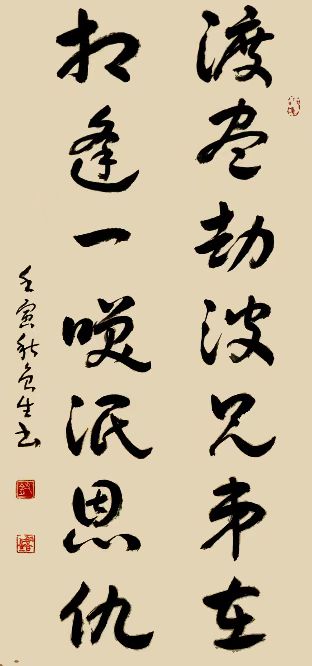 渡尽劫波兄弟在
相逢一咲泯恩仇
壬寅秋